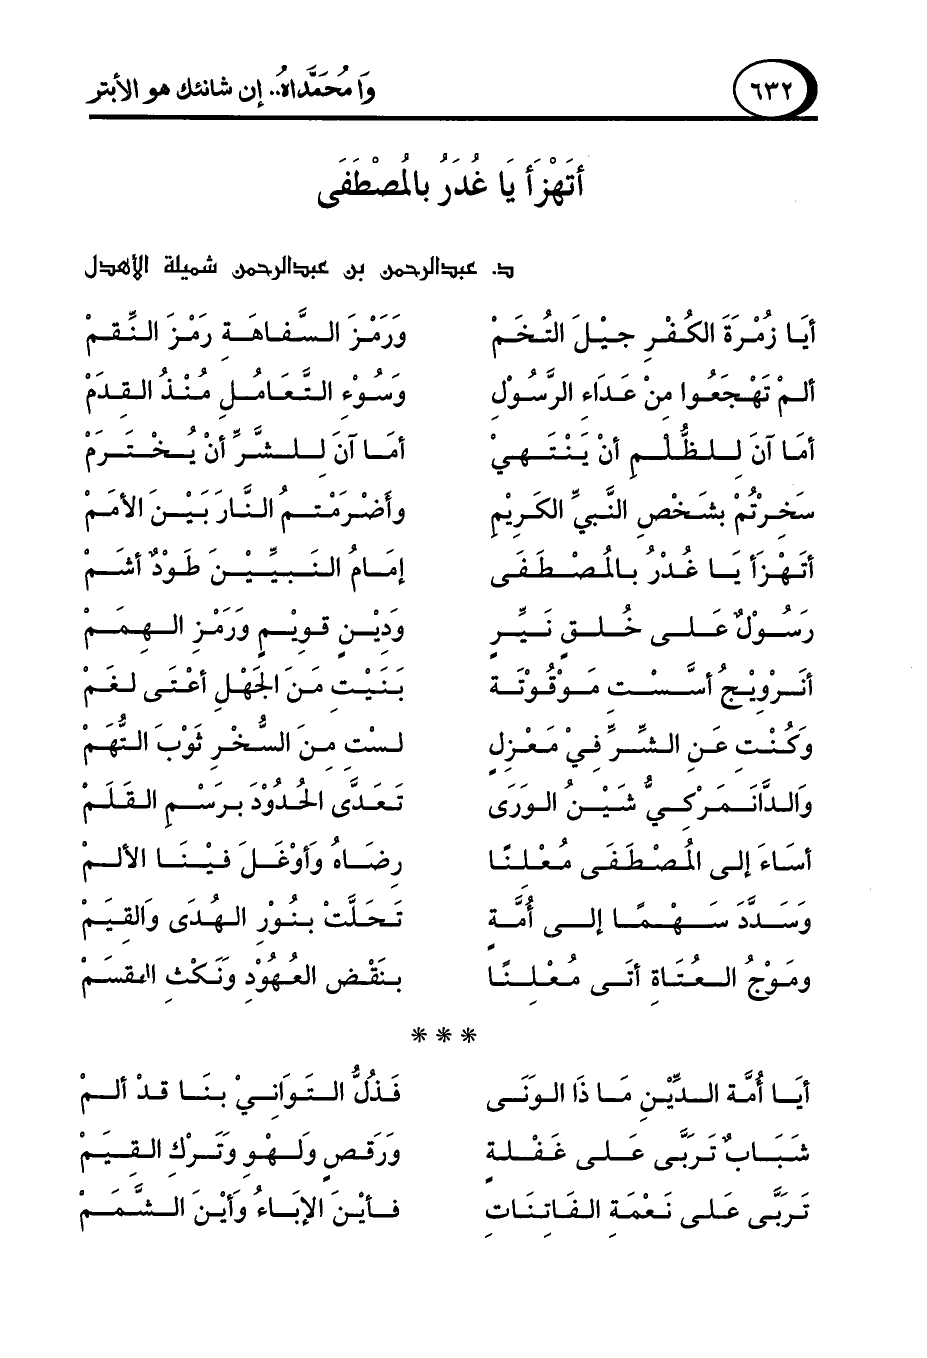 وَا مُحَمَّدَاهُ.. إِن شانئك هو الأبتر ٦٣٢
أَتَهْزَأ يَا غُدَرُ بالمُصْطَفَى
د. عبدالرحمن بن عبدالرحمن شميلة الأهدل
أيَا زُمْرَةَ الكُفْرِ جيْلَ التُخَمْ وَرَمْزَ السَّفاهَةِ رَمْزَ النِّقمْ
ألمْ تَهْجَعُوا مِنْ عَدَاءِ الرَّسُولْ وَسُوْءِ التَّعَامُلِ مُنْذُ القِدَمْ
أمَا آنَ لِلظُّلْمِ أنْ يَنْتَهِيْ أمَا آنَ لِلشَّرِّ أنْ يُخْتَرَمْ
سَخِرْتُمْ بشَخْصِ النَّبيِّ الكَريْمِ وأَضْرَمْتُمُ النَّارَ بَيْنَ الأمَمْ
أتَهْزَأ يَا غُدْرُ بالمُصْطَفَى إمَامُ النَّبيِّيْنَ طَودٌ أشَمْ
رَسُولٌ عَلَى خُلُقٍ نَيِّرٍ وَدِيْنٍ قَوِيْمٍ وَرَمْزِ الهِمَمْ
أنَرْوِيْجُ أسَّسْتِ مَوْقُوْتَةً بَنَيْتِ مِنَ الجَهْلِ أعْتَى لَغَمْ
وَكُنْتِ عَنِ الشَّرِّ فيْ مَعْزِلٍ لبسْتِ مِنَ السُّخْرِ ثَوْبَ التُّهَمْ
وَالدَّانَمَرْكيُّ شَيْنُ الوَرَى تَعَدَّى الحُدُوْدَ بِرَسْمِ القَلَمْ
أسَاءَ إلَى المُصْطَفَى مُعْلِنًا رِضَاهُ وَأوْغَلَ فيْنَا الألَمْ
وَسَدَّدَ سَهْمًا إلَى أُمَّةٍ تَحَلَّتْ بنُوْرِ الهُدَى وَالقِيَمْ
ومَوْجُ العُتَاةِ أتَى مُعْلِنًا بنَقْضِ العُهُوْدِ وَنَكْثِ القَسَمْ
* * *
أيَا أُمَّةَ الدِّيْنِ مَا ذَا الوَنَى فَذُلُّ التَّوَانيْ بنَا قدْ ألَمْ
شَبَابٌ تَرَبَّى عَلَى غَفْلَةٍ وَرَقصٍ وَلَهْوٍ وَتَرْكِ القِيَمْ
تَرَبَّى عَلَى نَغْمَةِ الفَاتِنَاتِ فَأيْنَ الإبَاءُ وَأيْنَ الشَّمَمْ